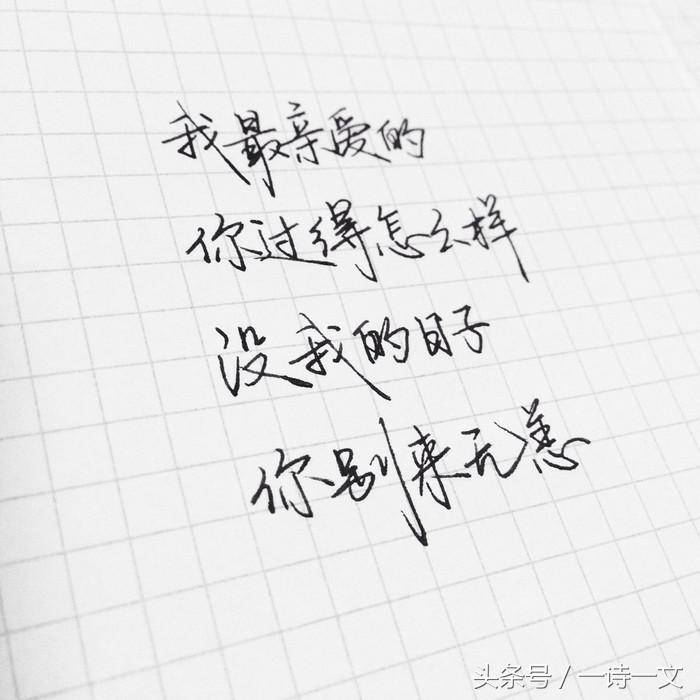 我最亲爱的
你过得怎么样
没我的日子
你别来无恙
头条号 / 一诗一文